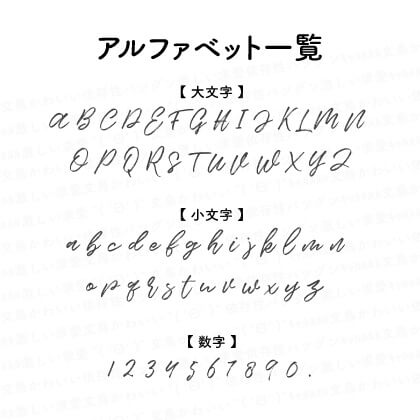 アルファベット一覧
【 大文字 】
A B C D E F G H I J K L M N
O P Q R S T U V W X Y Z
【 小文字 】
a b c d e f g h i j k l m n
o p q r s t u v w x y z
【 数字 】
1 2 3 4 5 6 7 8 9 0 .